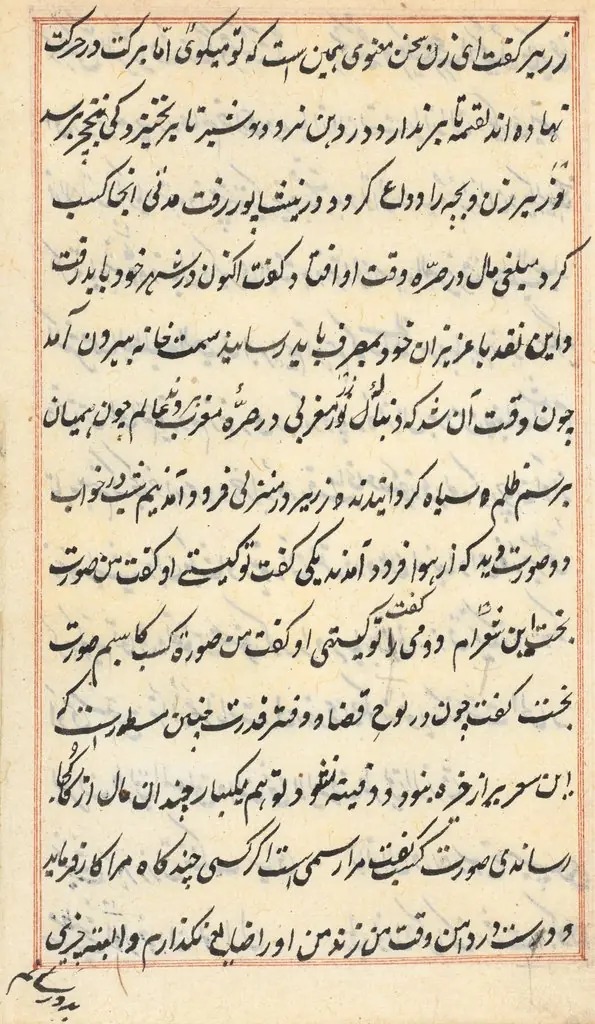 زریر گفت ای زن سخن معنوی همین است که تو میکوئی امّا برکت در حرکت
نهاده اند لقمه تا برندارد در دهن نرود و شیر تا برنخیزد کی بنخچیر رسد
زریر زن و بچه را وداع کرد و در نیشاپور رفت مدتی انجا کسب
کرد مبلغی مال در صرّه وقت او افتاد گفت اکنون در شهر خود باید رفت
و این نقد با عزیزان خود بمصرف باید رسانید سمت خانه بیرون آمد
چون وقت آن شد که دنبال زر مغربی در صرّه مغرب روند عالم چون همیان
برسم ظلم سیاه کردانیدند زریر در منزلی فرود آمد نیم شب در خواب
دو صورت دید که از هوا فرود آمدند یکی گفت تو کیستی او گفت من صورت
بخت این ام دومی را گفت تو کیستی او گفت من صورة کسب کاسبم صورت
بخت گفت چون در لوح قضا و دفتر قدرت چنین مسطور است که
این سریر از خرده بنود و دفینه نقود تو هم یکبار چندان مال از کجا
رساندی صورت کسب گفت مرا رسمی است اگر کسی چند کاه مرا کار فرماید
و دست در دامن وقت من زند من او را ضایع نکذارم و البته چیزی
بدو رسانم